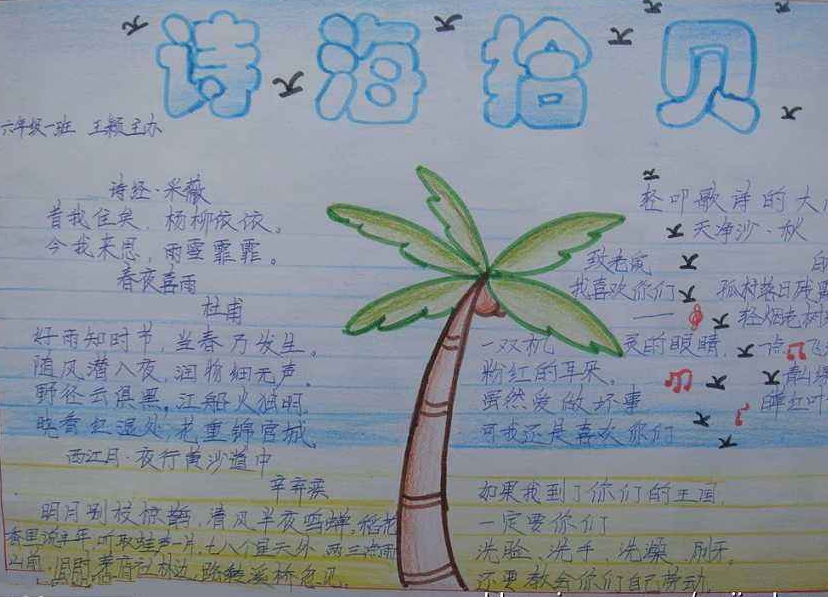 诗海拾贝
六年级一班 王颖主办
诗经·采薇
昔我住矣，杨柳依依。
今我来思，雨雪霏霏。
春夜喜雨
杜甫
好雨知时节，当春乃发生。
随风潜入夜，润物细无声。
野径云俱黑，江船火独明。
晓看红湿处，花重锦官城
西江月·夜行黄沙道中
辛弃疾
明月别枝惊鹊，清风半夜鸣蝉，稻花
香里说丰年，听取蛙声一片，七八个星天外 两三点雨
山前，旧时茅店社林边，路转溪桥忽见。
轻叩歌诗的大
天净沙·秋
孤村落日残
轻烟老树
一点飞
青山绿
红叶
致老鼠
我喜欢你们
一双机灵的眼睛
粉红的耳朵。
虽然爱做坏事
可我还是喜欢你们
如果我到了你们的王国，
一定要你们
洗脸、洗手、洗澡、刷牙。
还要教会你们自己劳动。